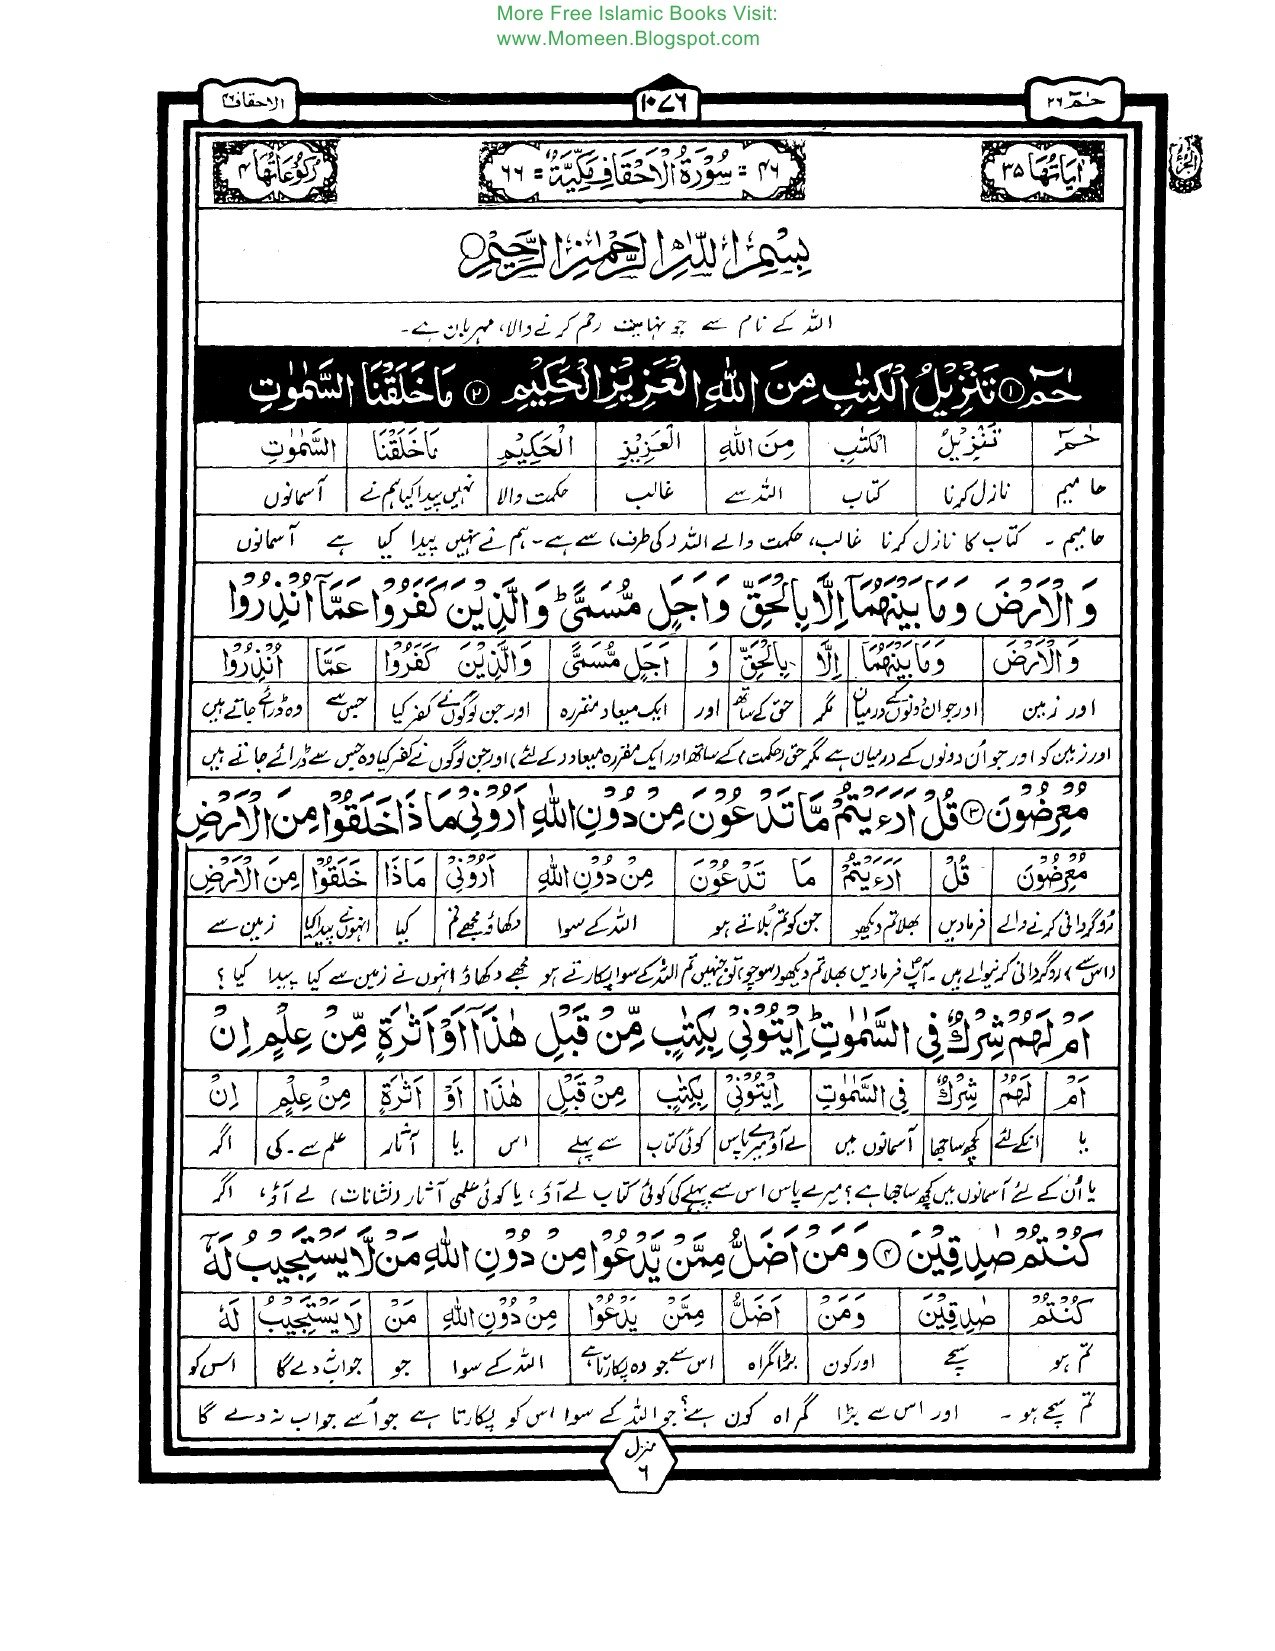 More Free Islamic Books Visit:
www.Momeen.Blogspot.com
حٰمٓ ٢٦
١٠٧٦
الاحقاف ٤٦
اٰیَاتُهَا ٣٥
٤٦ = سُوْرَةُ الْاَحْقَافِ مَکِّیَّةٌ = ٦٦
رُکُوْعَاتُهَا ٤
بِسْمِ اللّٰهِ الرَّحْمٰنِ الرَّحِیْمِ
اللہ کے نام سے جو نہایت رحم کرنے والا، مہربان ہے۔
حٰمٓ ۝١ تَنْزِیْلُ الْکِتٰبِ مِنَ اللّٰهِ الْعَزِیْزِ الْحَکِیْمِ ۝٢ مَا خَلَقْنَا السَّمٰوٰتِ
حٰمٓ تَنْزِیْلُ الْکِتٰبِ مِنَ اللّٰهِ الْعَزِیْزِ الْحَکِیْمِ مَا خَلَقْنَا السَّمٰوٰتِ
حامیم نازل کرنا کتاب اللہ سے غالب حکمت والا نہیں پیدا کیا ہم نے آسمانوں
حامیم ۔ کتاب کا نازل کرنا غالب، حکمت والے اللہ (کی طرف) سے ہے۔ ہم نے نہیں پیدا کیا ہے آسمانوں
وَالْاَرْضَ وَمَا بَیْنَهُمَاۤ اِلَّا بِالْحَقِّ وَاَجَلٍ مُّسَمًّی ؕ وَالَّذِیْنَ کَفَرُوْا عَمَّاۤ اُنْذِرُوْا
وَالْاَرْضَ وَمَا بَیْنَهُمَاۤ اِلَّا بِالْحَقِّ وَ اَجَلٍ مُّسَمًّی وَالَّذِیْنَ کَفَرُوْا عَمَّا اُنْذِرُوْا
اور زمین اور جو ان دونوں کے درمیان مگر حق کے ساتھ اور ایک میعاد مقررہ اور جن لوگوں نے کفر کیا جس سے وہ ڈرائے جاتے ہیں
اور زمین کو اور جو اُن دونوں کے درمیان ہے مگر حق (حکمت) کے ساتھ اور ایک مقررہ میعاد (کے لئے) اور جن لوگوں نے کفر کیا وہ جس سے ڈرائے جاتے ہیں
مُعْرِضُوْنَ ۝٣ قُلْ اَرَءَیْتُمْ مَّا تَدْعُوْنَ مِنْ دُوْنِ اللّٰهِ اَرُوْنِیْ مَاذَا خَلَقُوْا مِنَ الْاَرْضِ
مُعْرِضُوْنَ قُلْ اَرَءَیْتُمْ مَا تَدْعُوْنَ مِنْ دُوْنِ اللّٰهِ اَرُوْنِیْ مَاذَا خَلَقُوْا مِنَ الْاَرْضِ
رُوگردانی کرنے والے فرمادیں بھلا تم دیکھو جن کو تم بُلاتے ہو اللہ کے سوا دکھاؤ مجھے تم کیا انہوں نے پیدا کیا زمین سے
(اس سے) روگردانی کرنیوالے ہیں ۔ آپؐ فرمادیں بھلا تم دیکھو (سوچو) تو جنہیں تم اللہ کے سوا پکارتے ہو مجھے دکھاؤ انہوں نے زمین سے کیا پیدا کیا ؟
اَمْ لَهُمْ شِرْکٌ فِی السَّمٰوٰتِ ؕ اِیْتُوْنِیْ بِکِتٰبٍ مِّنْ قَبْلِ هٰذَاۤ اَوْ اَثٰرَةٍ مِّنْ عِلْمٍ اِنْ
اَمْ لَهُمْ شِرْکٌ فِی السَّمٰوٰتِ اِیْتُوْنِیْ بِکِتٰبٍ مِنْ قَبْلِ هٰذَا اَوْ اَثٰرَةٍ مِنْ عِلْمٍ اِنْ
یا انکے لئے کچھ ساجھا آسمانوں میں لے آؤ میرے پاس کوئی کتاب سے پہلے اس یا آثار علم سے ۔ کی اگر
یا اُن کے لئے آسمانوں میں کچھ ساجھا ہے ؟ میرے پاس اس سے پہلے کی کوئی کتاب لے آؤ ، یا کوئی علمی آثار (نشانات) لے آؤ ، اگر
کُنْتُمْ صٰدِقِیْنَ ۝٤ وَمَنْ اَضَلُّ مِمَّنْ یَّدْعُوْا مِنْ دُوْنِ اللّٰهِ مَنْ لَّا یَسْتَجِیْبُ لَهٗۤ
کُنْتُمْ صٰدِقِیْنَ وَمَنْ اَضَلُّ مِمَّنْ یَدْعُوْا مِنْ دُوْنِ اللّٰهِ مَنْ لَا یَسْتَجِیْبُ لَهٗ
تم ہو سچے اور کون بڑا گمراہ اس سے جو وہ پکارتا ہے اللہ کے سوا جو جواب نہ دے گا اس کو
تم سچے ہو ۔ اور اس سے بڑا گمراہ کون ہے؟ جو اللہ کے سوا اس کو پکارتا ہے جو اُسے جواب نہ دے گا
منزل ٦